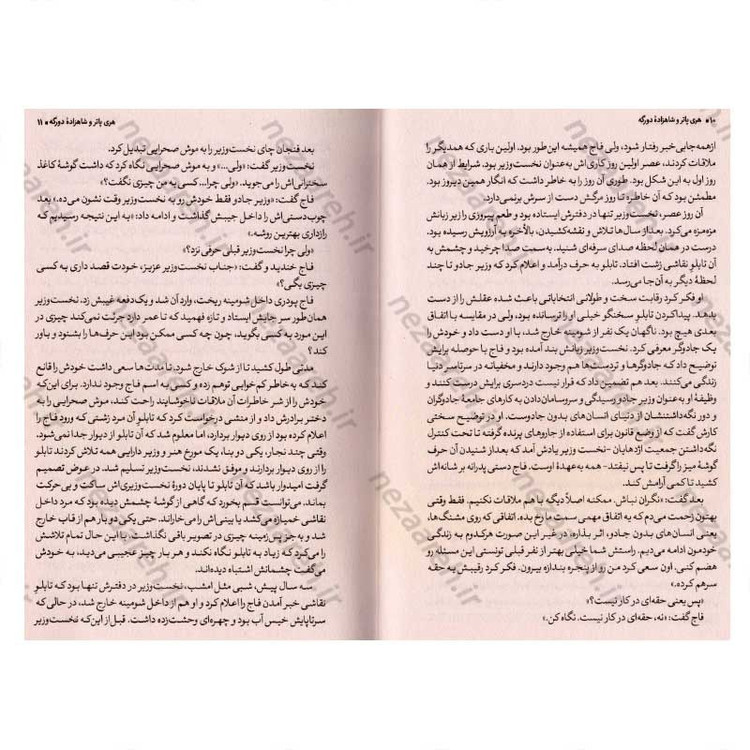 ۱۰ ■ هری پاتر و شاهزادهٔ دورگه
ازهمه‌جابی‌خبر رفتار شود، ولی فاج همیشه این‌طور بود. اولین باری که همدیگر را
ملاقات کردند، عصر اولین روز کاری‌اش به‌عنوان نخست‌وزیر بود. شرایط از همان
روز اول به این شکل بود. طوری آن روز را به خاطر داشت که انگار همین دیروز بود.
مطمئن بود که آن خاطره تا روز مرگش دست از سرش برنمی‌دارد.
آن روز عصر، نخست‌وزیر تنها در دفترش ایستاده بود و طعم پیروزی را زیر زبانش
مزه‌مزه می‌کرد. بعد از سال‌ها تلاش و نقشه‌کشیدن، بالأخره به آرزویش رسیده بود.
درست در همان لحظه صدای سرفه‌ای شنید. به سمت صدا چرخید و چشمش به
آن تابلوِ نقاشی زشت افتاد. تابلو به حرف درآمد و اعلام کرد که وزیر جادو تا چند
لحظهٔ دیگر به آن‌جا می‌رسد.
او فکر کرد رقابت سخت و طولانی انتخاباتی باعث شده عقلش را از دست
بدهد. پیداکردن تابلوِ سخنگو خیلی او را ترسانده بود، ولی در مقایسه با اتفاق
بعدی هیچ بود. ناگهان یک نفر از شومینه خارج شد، با او دست داد و خودش را
یک جادوگر معرفی کرد. نخست‌وزیر زبانش بند آمده بود و فاج با حوصله برایش
توضیح داد که جادوگرها و تردست‌ها هم وجود دارند و مخفیانه در سرتاسر دنیا
زندگی می‌کنند. بعد هم تضمین داد که قرار نیست دردسری برایش درست کنند و
وظیفهٔ او به‌عنوان وزیر جادو رسیدگی و سروسامان‌دادن به کارهای جامعهٔ جادوگران
و دور نگه‌داشتنشان از دنیای انسان‌های بدون جادوست. او در توضیح سختی
کارش گفت که از وضع قانون برای استفاده از جاروهای پرنده گرفته تا تحت کنترل
نگه‌داشتن جمعیت اژدهایان -نخست وزیر یادش آمد که بعداز شنیدن آن حرف
گوشهٔ میز را گرفت تا پس نیفتد- همه به‌عهدهٔ اوست. فاج دستی پدرانه بر شانه‌اش
کشید تا کمی آرامش کند.
بعد گفت: «نگران نباش. ممکنه اصلاً دیگه با هم ملاقات نکنیم. فقط وقتی
بهتون زحمت می‌دم که یه اتفاق مهمی سمت ما رخ بده. اتفاقی که روی مشنگ‌ها،
یعنی انسان‌های بدون جادو، اثر بذاره. در غیر این صورت هرکدوم به زندگی
خودمون ادامه می‌دیم. راستش شما خیلی بهتر از نفر قبلی تونستی این مسئله رو
هضم کنی. اون سعی کرد من رو از پنجره بندازه بیرون. فکر کرد رقیبش یه حقه
سرهم کرده.»
«پس یعنی حقه‌ای در کار نیست؟»
فاج گفت: «نه، حقه‌ای در کار نیست. نگاه کن.»
هری پاتر و شاهزادهٔ دورگه ■ ۱۱
بعد فنجان چای نخست‌وزیر را به موش صحرایی تبدیل کرد.
نخست‌وزیر گفت: «ولی...» و به موش صحرایی نگاه کرد که داشت گوشهٔ کاغذ
سخنرانی‌اش را می‌جوید. «ولی چرا... کسی به من چیزی نگفت؟»
فاج گفت: «وزیر جادو فقط خودش رو به نخست‌وزیر وقت نشون می‌ده.» بعد
چوب‌دستی‌اش را داخل جیبش گذاشت و ادامه داد: «به این نتیجه رسیدیم که
رازداری بهترین روشه.»
«ولی چرا نخست‌وزیر قبلی حرفی نزد؟»
فاج خندید و گفت: «جناب نخست‌وزیر عزیز، خودت قصد داری به کسی
چیزی بگی؟»
فاج پودری داخل شومینه ریخت، وارد آن شد و یک‌دفعه غیبش زد. نخست‌وزیر
همان‌طور سر جایش ایستاد و تازه فهمید که تا عمر دارد جرئت نمی‌کند چیزی در
این مورد به کسی بگوید، چون چه کسی ممکن بود این حرف‌ها را بشنود و باور
کند؟
مدتی طول کشید تا از شوک خارج شود. تا مدت‌ها سعی داشت خودش را قانع
کند که به خاطر کم‌خوابی توهم زده و کسی به اسم فاج وجود ندارد. برای این‌که
خودش را از شر خاطرات آن ملاقات ناخوشایند راحت کند، موش صحرایی را به
دختر برادرش داد و از منشی درخواست کرد که تابلوِ آن مرد زشتی که ورود فاج را
اعلام کرده بود از روی دیوار بردارد، اما معلوم شد که آن تابلو از دیوار جدا نمی‌شود.
وقتی چند نجار، یکی دو بنا، یک مورخ هنر و وزیر دارایی همه تلاش کردند تابلو
را از روی دیوار بردارند و موفق نشدند، نخست‌وزیر تسلیم شد. در عوض تصمیم
گرفت امیدوار باشد که آن تابلو تا پایان دورهٔ نخست‌وزیری‌اش ساکت و بی‌حرکت
بماند. می‌توانست قسم بخورد که گاهی از گوشهٔ چشمش دیده بود که مرد داخل
نقاشی خمیازه می‌کشد یا بینی‌اش را می‌خاراند. حتی یکی دو بار هم از قاب خارج
شد و به جز پس زمینه چیزی در تصویر باقی نگذاشت. با این حال تمام تلاشش
را می‌کرد که زیاد به تابلو نگاه نکند و هر بار چیز عجیبی می‌دید، به خودش
می‌گفت چشمانش اشتباه دیده‌اند.
سه سال پیش، شبی مثل امشب، نخست‌وزیر در دفترش تنها بود که تابلوِ
نقاشی خبر آمدن فاج را اعلام کرد و او هم از داخل شومینه خارج شد، در حالی که
سرتاپایش خیس آب بود و چهره‌ای وحشت‌زده داشت. قبل از این‌که نخست‌وزیر
nezaareh.ir